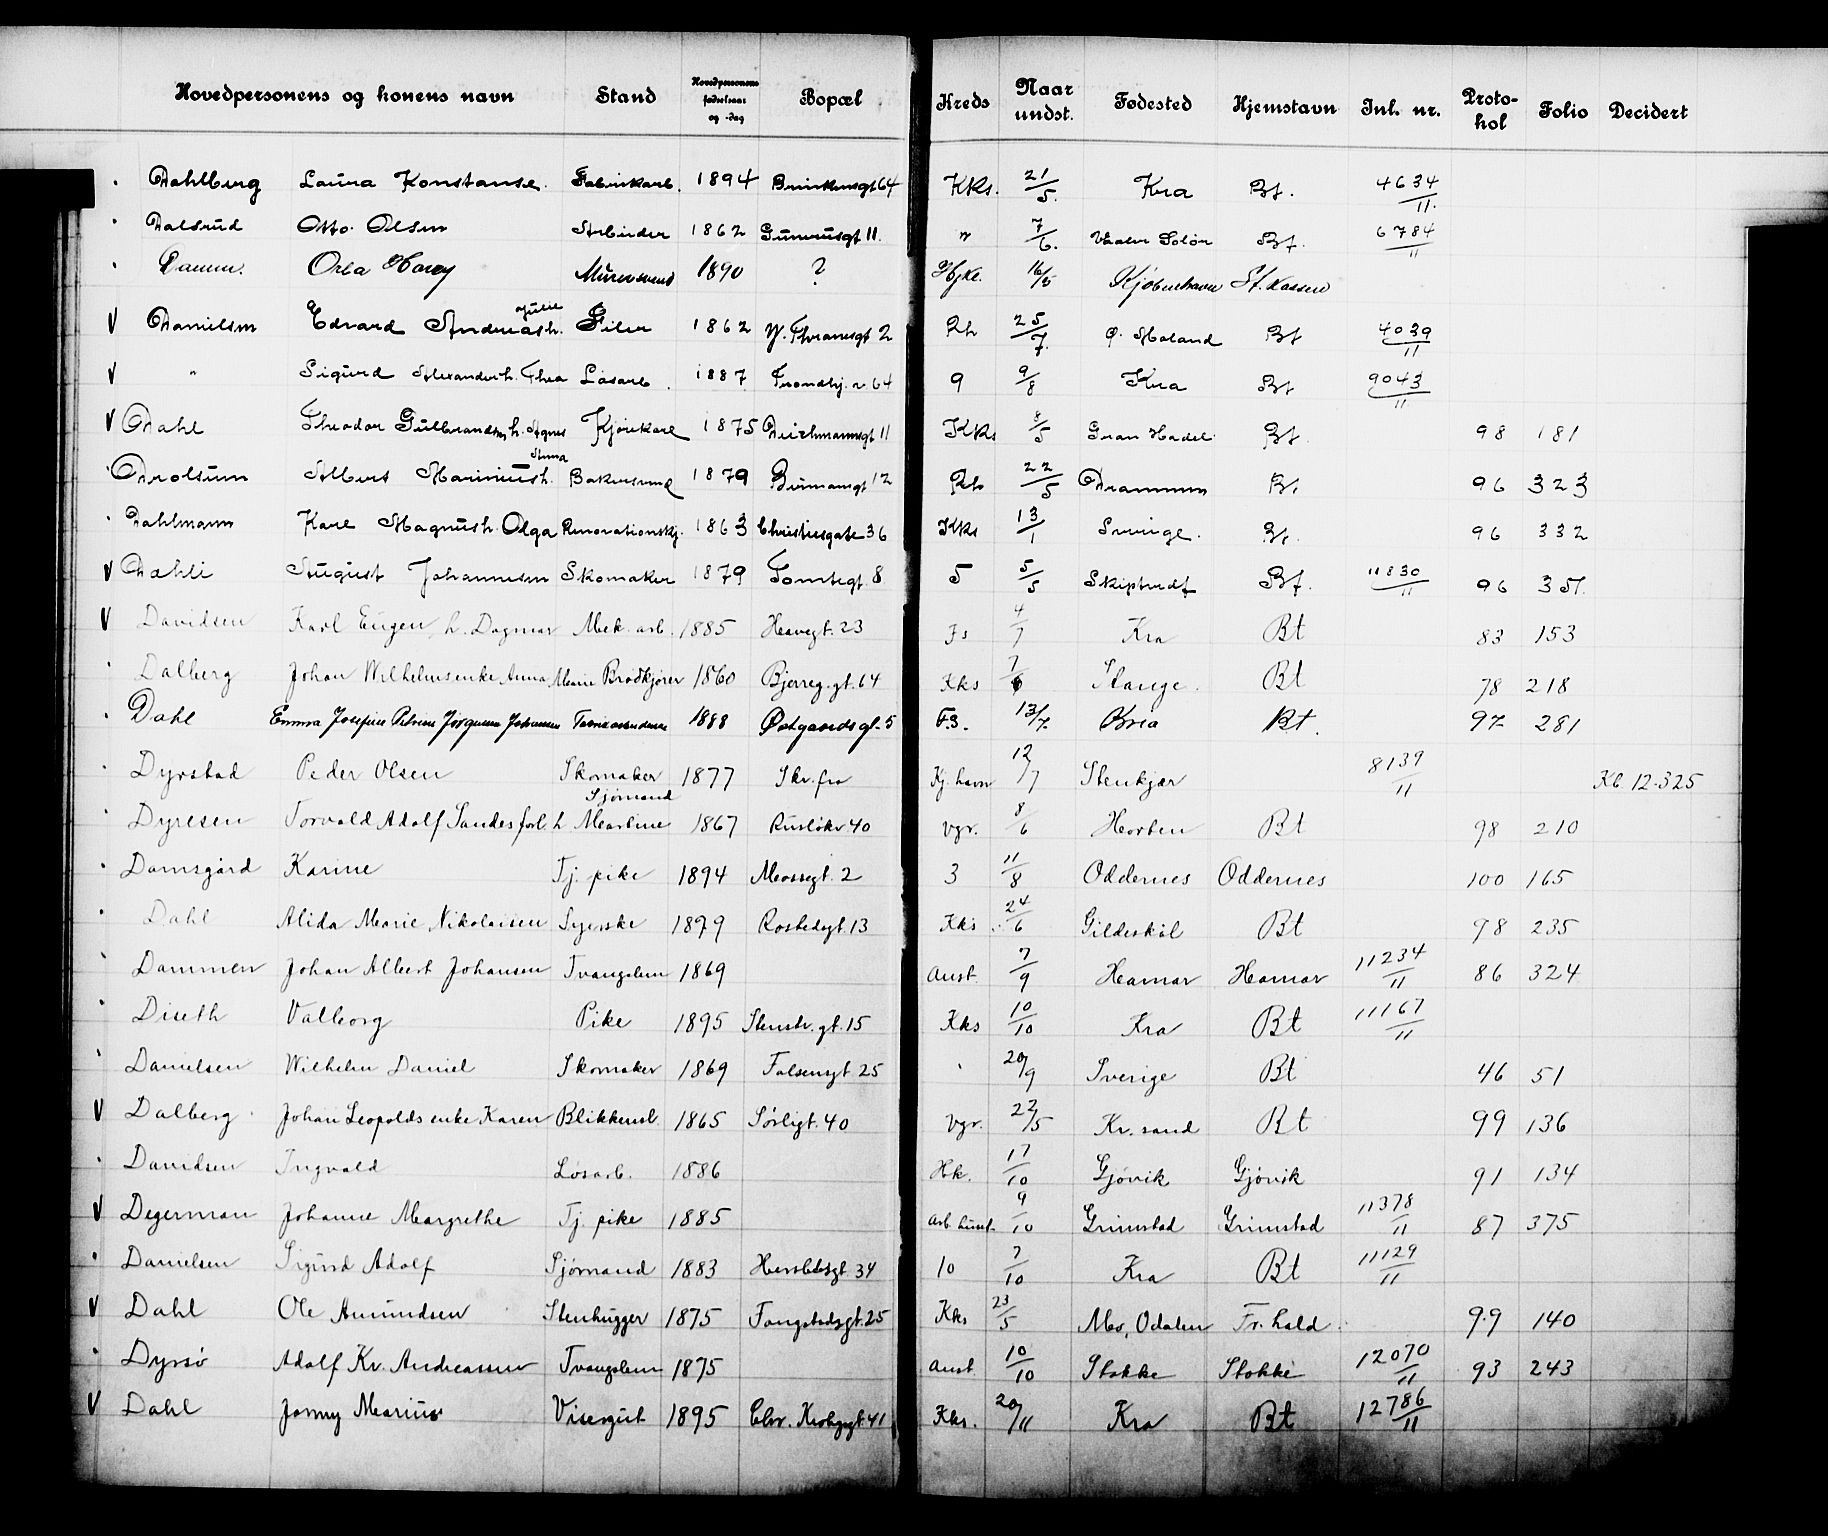 Hovedpersonens og konens navn Stand Hovedpersonens fødselsaar og -dag Bopæl Kreds Naar undst. Fødested Hjemstavn Inl. nr. Protokol Folio Decidert
Dahlberg Laura Konstanse. Fabrikarb. 1894 Brinkensgt 64 Kks. 21/5. Kra Bt. 4634/11.
Dalsrud Otto Olsen Arbeider 1862 Gunerusgt 11. " 7/6. Vaaler Solør Bt. 6784/11
Damm. Orla Harry Murersvend 1890 ? Hjke. 16/5 Kjøbenhavn St. kassen
V Danielsen Edvard Andreas h. Julie Filer 1862 M. Thranesgt 2 Rh 25/7. Ø. Moland Bt 4039/11
V " Sigurd Alexander h. Thea Løsarb. 1887 Trondhj. v 64 9 9/8 Kra Bt 9043/11
V Dahl Theodor Gulbrandsen h. Agnes Kjørekarl 1875 Deichmannsgt 11 Kks 8/5 Gran Hadel. Bt. 98 181
Drolsum Albert Marinius h. Anna Bakersvend 1879 Birmansgt 12 Rh 22/5 Drammen Bt. 96 323
Dahlmann Karl Magnus h. Olga Renovationskj. 1863 Christiesgate 36 Kks 13/1 Sverige. Bt. 96 332
V Dæhli August Johannesen Skomaker 1879 Tomtegt 8 5 5/5 Skiptvedt Bt. 11830/11 96 351.
V Davidsen Karl Eugen, h. Dagmar Mek. arb. 1885 Havegt. 23 Fs 4/7 Kra Bt 83 153
Dalberg Johan Wilhelms enke Anna Marie Brødkjører 1860 Bjerreg. gt. 64 Kks 7/6 Stange. Bt 78 218
Dahl Emma Josefine Petrine Jørgensen Johansen 1888 Østgaards gt. 5 F.3. 13/7. Kria Bt. 97 281
Dyrstad Peder Olsen Skomaker 1877 Skr. fra Kj. havn 12/7 Stenkjær 8139/11 Kb. 12-325
Dyresen Torvald Adolf Sandes forl. h. Martine Sjømand 1867 Ruseløkv 40 Vgr. 8/6 Horten Bt 98 210
Damsgård Karine Tj. pike 1894 Mossegt. 2 3 11/8 Oddernes Oddernes 100 165
Dahl Alida Marie Nikolaisen Syerske 1879 Rostedsgt. 13 Kks 24/6 Gildeskål Bt 98 235
Dammen Johan Albert Johansen Tvangslem 1869 Anst. 7/9 Hamar Hamar 11234/11 86 324
Diseth Valborg Pike 1895 Stenstr. gt. 15 Kks 10/10 Kra Bt 11167/11
Danielsen Wilhelm Daniel Skomaker 1869 Falsensgt 25 " 20/9 Sverige Bt 46 51
V Dalberg Johan Leopolds enke Karen Blikkensl. 1865 Sørligt. 40 Vgr. 22/5 Kr. sand Bt 99 136
Davidsen Ingvald Løsarb. 1886 Hk. 17/10 Gjøvik Gjøvik 91 134
V Degerman Johanne Margrethe Tj. pike 1885 9/10 Grimstad Grimstad 11378/11 87 375
Danielsen Sigurd Adolf Sjømand 1883 Herslebsgt. 34 10 7/10 Kra Bt 11129/11
V Dahl Ole Amundsen Stenhugger 1875 Fougstadsgt. 25 Kks 23/5 Nes, Odalen Fr. hald. 99 140
Dyrsø Adolf Kr. Andreassen Tvangslem 1875 Anst 10/10 Stokke Stokke 12070/11 93 243
V Dahl Jonny Marius Visergut 1895 Chr. Krohgsgt 41 Kks. 20/11 Kra Bt 12786/11